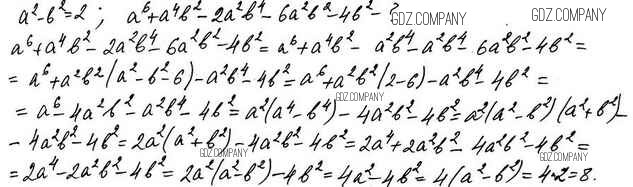 a²-b²=2; a⁶+a⁴b²-2a²b⁴-6a²b²-4b²-?
GDZ.COMPANY GDZ.COMPANY
a⁶+a⁴b²-2a²b⁴-6a²b²-4b²=a⁶+a⁴b²-a²b⁴-a²b⁴-6a²b²-4b²=
=a⁶+a²b²(a²-b²-6)-a²b⁴-4b²=a⁶+a²b²(2-6)-a²b⁴-4b²=
GDZ.COMPANY
=a⁶-4a²b²-a²b⁴-4b²=a²(a⁴-b⁴)-4a²b²-4b²=a²(a²-b²)(a²+b²)-
-4a²b²-4b²=2a²(a²+b²)-4a²b²-4b²=2a⁴+2a²b²-4a²b²-4b²=
GDZ.COMPANY GDZ.COMPANY
=2a⁴-2a²b²-4b²=2a²(a²-b²)-4b²=4a²-4b²=4(a²-b²)=4·2=8.